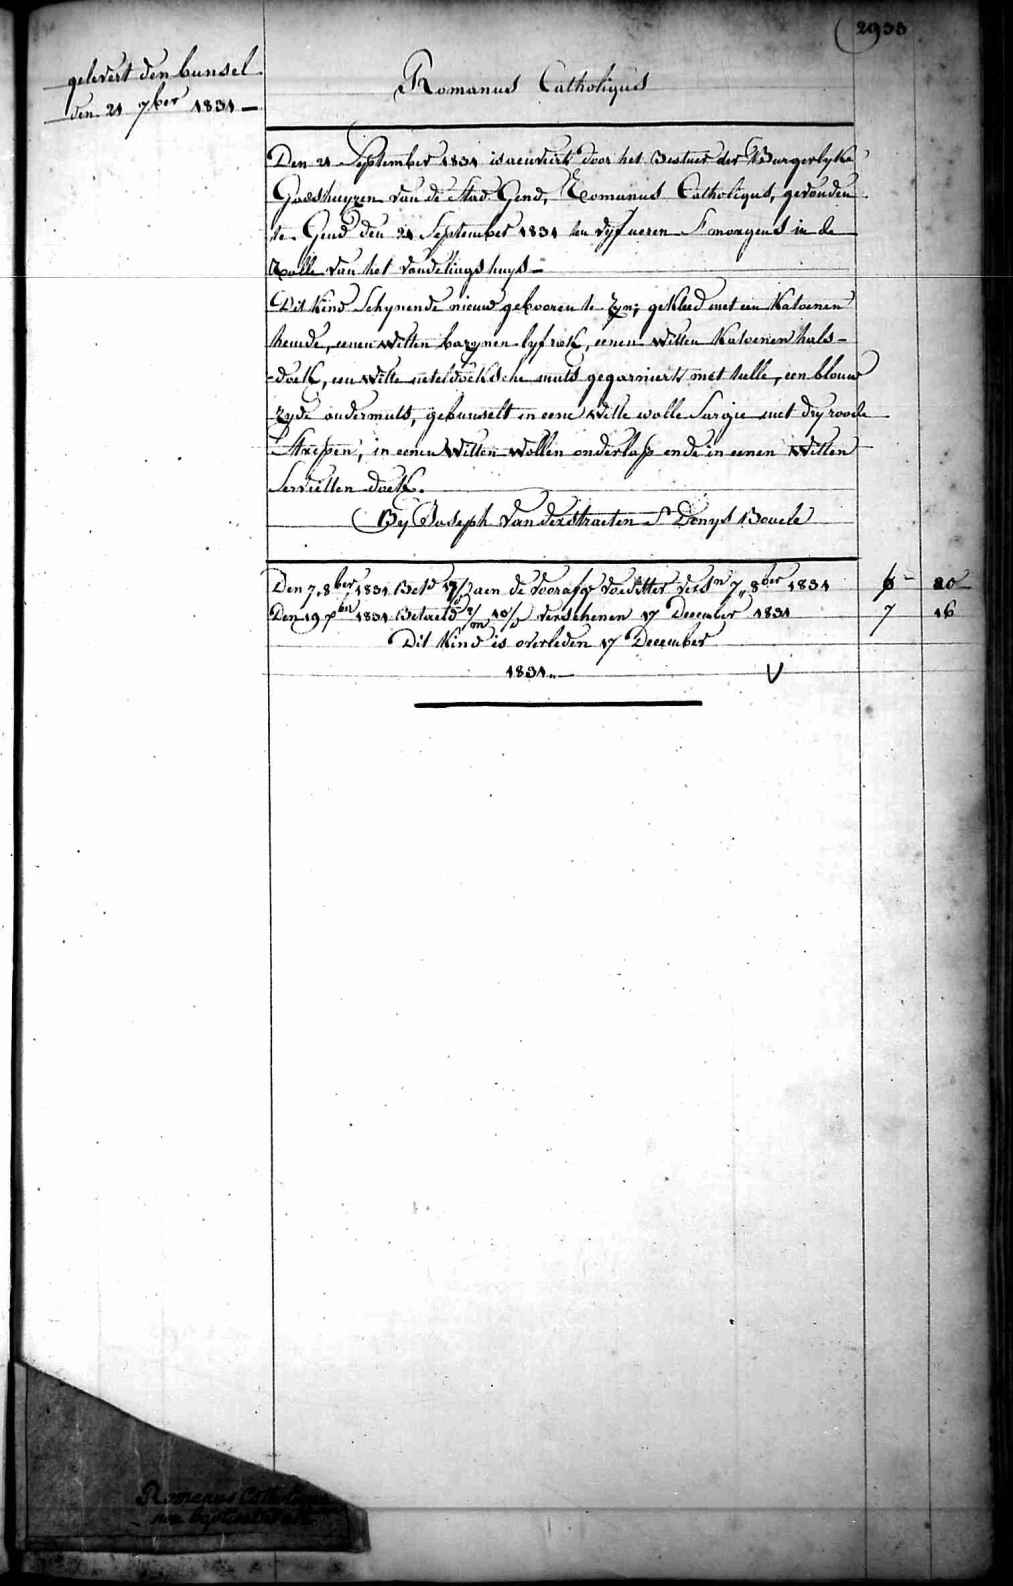 2933
gelevert den bunsel
den 21 7ber 1831 —
Romanus Catholiqus
Den 21 September 1831 is aenveirt door het Bestuer der Burgerlyke
Godshuyzen van de Stad Gend, Romanus Catholiqus, gevonden
te Gend den 21 September 1831 ten vyf ueren S'morgens in de
Rolle van het vondelings huys —
Dit Kind Schynende nieuw gebooren te zyn; gekleed met een Katoenen
hemde, eenen witten bazynen lyfrok, eenen witten Katoenen hals-
-doek, een witte neteldoeksche muts gegarniert met tulle, een blouw
zyde ondermuts, gebunselt in eene witte wolle Sargie met dry roode
Strepen, in eenen Witten Wollen onderlap ende in eenen Witten
Servietten doek.
By Joseph Vanderstraeten St Denys Boucle
Den 7, 8ber 1831 Betd aen de voorafg voedster vers 7, 8ber 1831 6 - 20
Den 19 Xber 1831 Betaeld verschenen 17 December 1831 7 16
Dit Kind is overleden 17 December
1831.. — V
Romanus